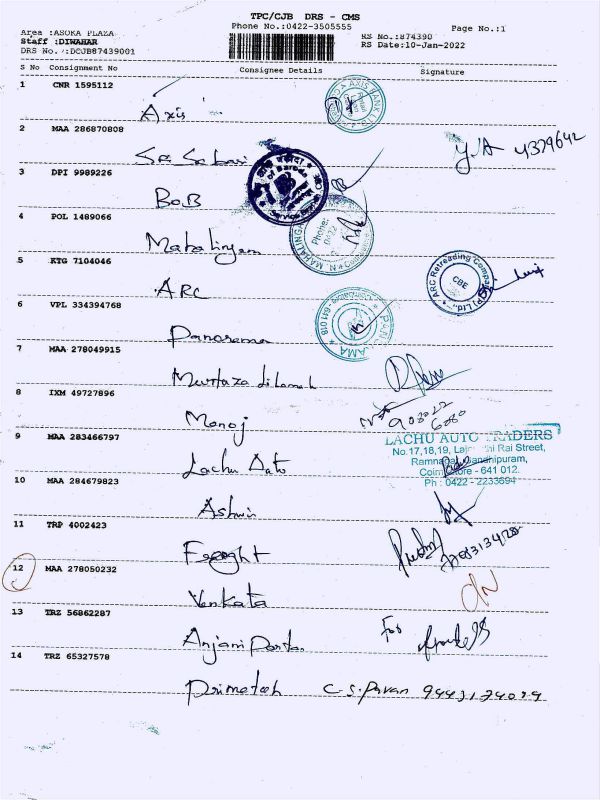 TPC/CJB DRS - CMS
Phone No.:0422-3505555
Page No.:1
Area :ASOKA PLAZA
Staff :DIWAHAR
DRS No. :DCJB87439001
RS No.:1874390
RS Date:10-Jan-2022
S No Consignment No Consignee Details Signature
1 CNR 1595112
Axis
AXIS BANK
2 MAA 286870808
4379642
3 DPI 9989226
BOB
4 POL 1489066
Phone: 0422
Mahalingam
5 KTG 7104046
ARC
ARC Retreading Company (P) Ltd.,
CBE
6 VPL 334394768
Panorama
641018
7 MAA 278049915
Murtaza
8 IXM 49727896
Manoj
9 MAA 283466797
LACHU AUTO TRADERS
No.17,18,19, Rai Street,
Ramnagar, Gandhipuram,
Coimbatore - 641 012.
Ph : 0422 - 2233694
Lachu Auto
10 MAA 284679823
Ashwin
11 TRP 4002423
Freight
12 MAA 278050232
Venkata
13 TRZ 56862287
Anjani
For
14 TRZ 65327578
C.S. Pavan